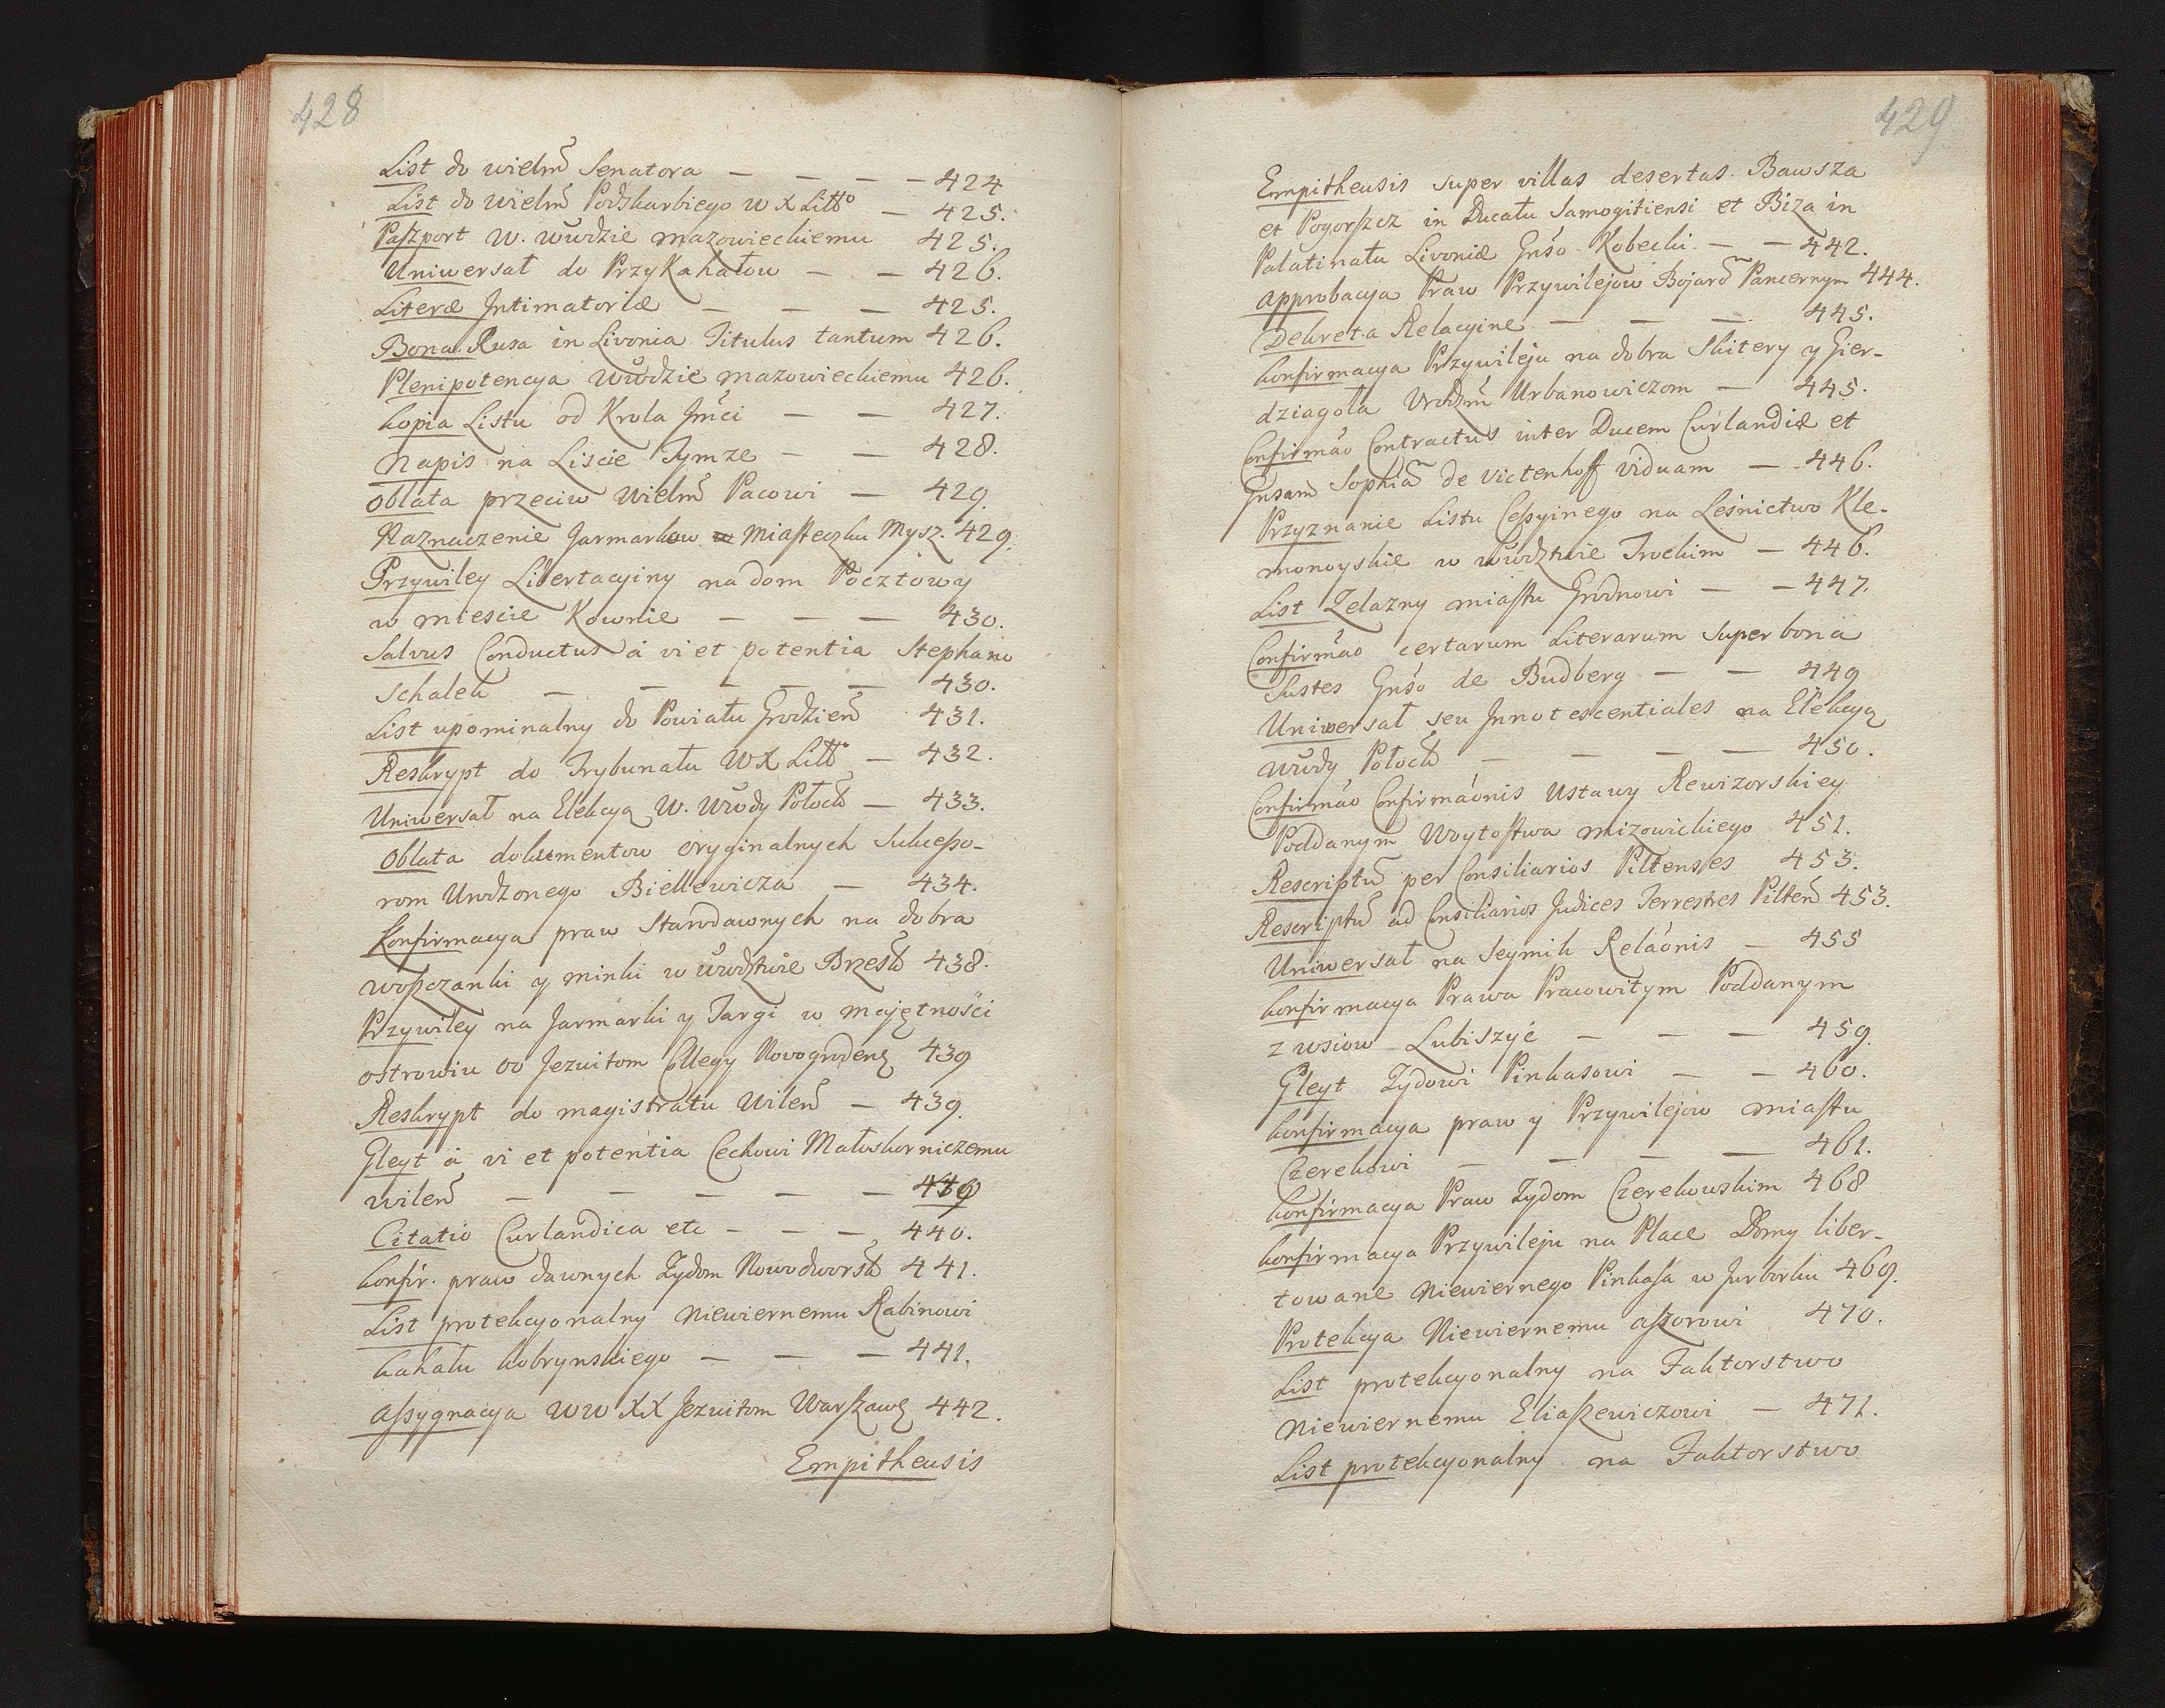 428
List do wielm̃ Senatora — — — — 424
List do wielm̃ Podskarbiego W X Litt° — 425.
Paszport W. Wwdzie mazowieckiemu 425.
Uniwersał do PrzyKahałow — — 426.
Literæ Intimatoriæ — — — 425.
Bona Rusa in Livonia Titulus tantum 426.
Plenipotencya Wwdzie mazowieckiemu 426.
kopia Listu od Krola Jmci — — 427.
Napis na Liscie Tymze — — 428.
Oblata przeciw Wielm̃ Pacowi — 429
Naznaczenie Jarmarkow w Miasteczku Mysz. 429.
Przywiley Libertacyiny na dom Pocztowy
w miescie Kownie — — — 430.
Salvus Conductus à vi et potentia Stephano
Schaleh — — — — — 430.
List upominalny do Powiatu Grodzień 431.
Reskrypt do Trybunału WX Litt° — 432.
Uniwersał na Elekcyą W. Wwdy Połock — 433.
Oblata dokumentow oryginalnych Sukcesso-
rom Urodzonego Biellewicza — 434.
Konfirmacya praw Starodawnych na dobra
woszczanki y minki w wwdztwie Brzesk 438.
Przywiley na Jarmarki y Targi w majętności
ostrowiu OO Jezuitom Collegy Novogroden 439
Reskrypt do magistratu Wilen — 439.
Gleyt à vi et potentia Cechowi Małoskorniczemu
wilen — — — — — 440
Citatio Curlandica etc — — — 440.
konfir. praw dawnych Zydom Nowodworsk 441.
List protekcyonalny Niewiernemu Rabinowi
kahału kobrynskiego — — — 441.
assygnacya WW XX Jezuitom Warszaws 442.
Empitheusis
429
Empitheusis super villas desertas Bawsza
et Pogorszcz in Ducatu Samogitiensi et Biza in
Palatinatu Livoniæ Gnso Kobecki — — 442.
approbacya Praw Przywilejow Bojarõ Pancernym 444.
Dekreta Relacyine — — — 445.
konfirmacya Przywileju na dobra Skitery y Gier-
dziagola Urodzm̃ Urbanowiczom — 445.
Confirmão Contractus inter Ducem Curlandiæ et
Gnsam Sophiã de Victenhoff Viduam — 446.
Przyznanie Listu Cessyinego na Leśnictwo Kle-
monoyskie w wwdztwie Trockim — 446.
List Zelazny miastu Grodnowi — — 447.
Confirmão certarum Literarum Super bona
Sustes Gnso de Budberg — — 449
Uniwersał seu Innotescentiales na Elekcyą
wwdy Połock — — — — 450.
Confirmão Confirmãonis Ustawy Rewizorskiey
Poddanym Woytostwa mizowickiego 451.
Rescriptũ per Consiliarios Piltenses 453.
Rescriptũ ad Consiliarios Judices Terrestres Pilteñ 453.
Uniwersał na Seymik Relãonis — 455
konfirmacya Prawa Pracowitym Poddanym
z wsiow Lubiszyć — — — 459
Gleyt Zydowi Pinkasowi — — 460.
konfirmacya praw y Przywilejow miastu
Czerekowi — — — — 461.
konfirmacya Praw Zydom Czerekowskim 468
konfirmacya Przywileju na Place Domy liber-
towane Niewiernego Pinkasa w Jurborku 469.
Protekcya Niewiernemu aszorowi 470.
List protekcyonalny na Faktorstwo
Niewiernemu Eliaszewiczowi — 471.
List protekcyonalny na Faktorstwo